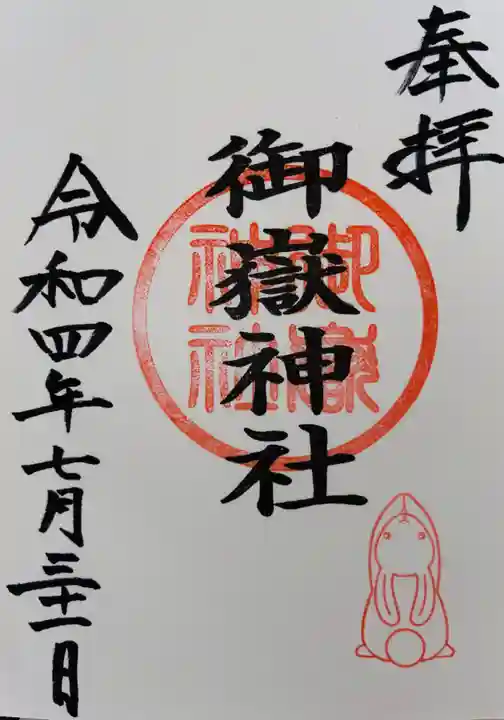 奉拝
御嶽神社
御嶽
神社
令和四年七月三十一日